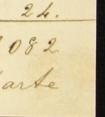 24.
082
arte